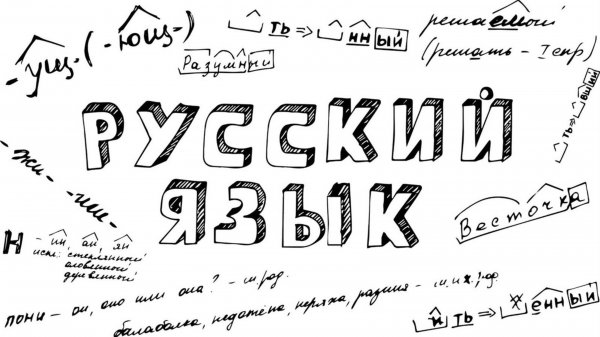 -ущ- (-ющ-)
ть ⇒ нный
решаемый
(решать - I спр)
Разумный
ть ⇒ вший
РУССКИЙ
-жи- -ши-
ЯЗЫК
Весточка
Н - ин, ан, ян
искл: стеклянный
оловянный
деревянный
пони - он, оно или она? - м.род.
балаболка, недотёпа, неряха, разиня - м. и ж. род
и ть ⇒ енный